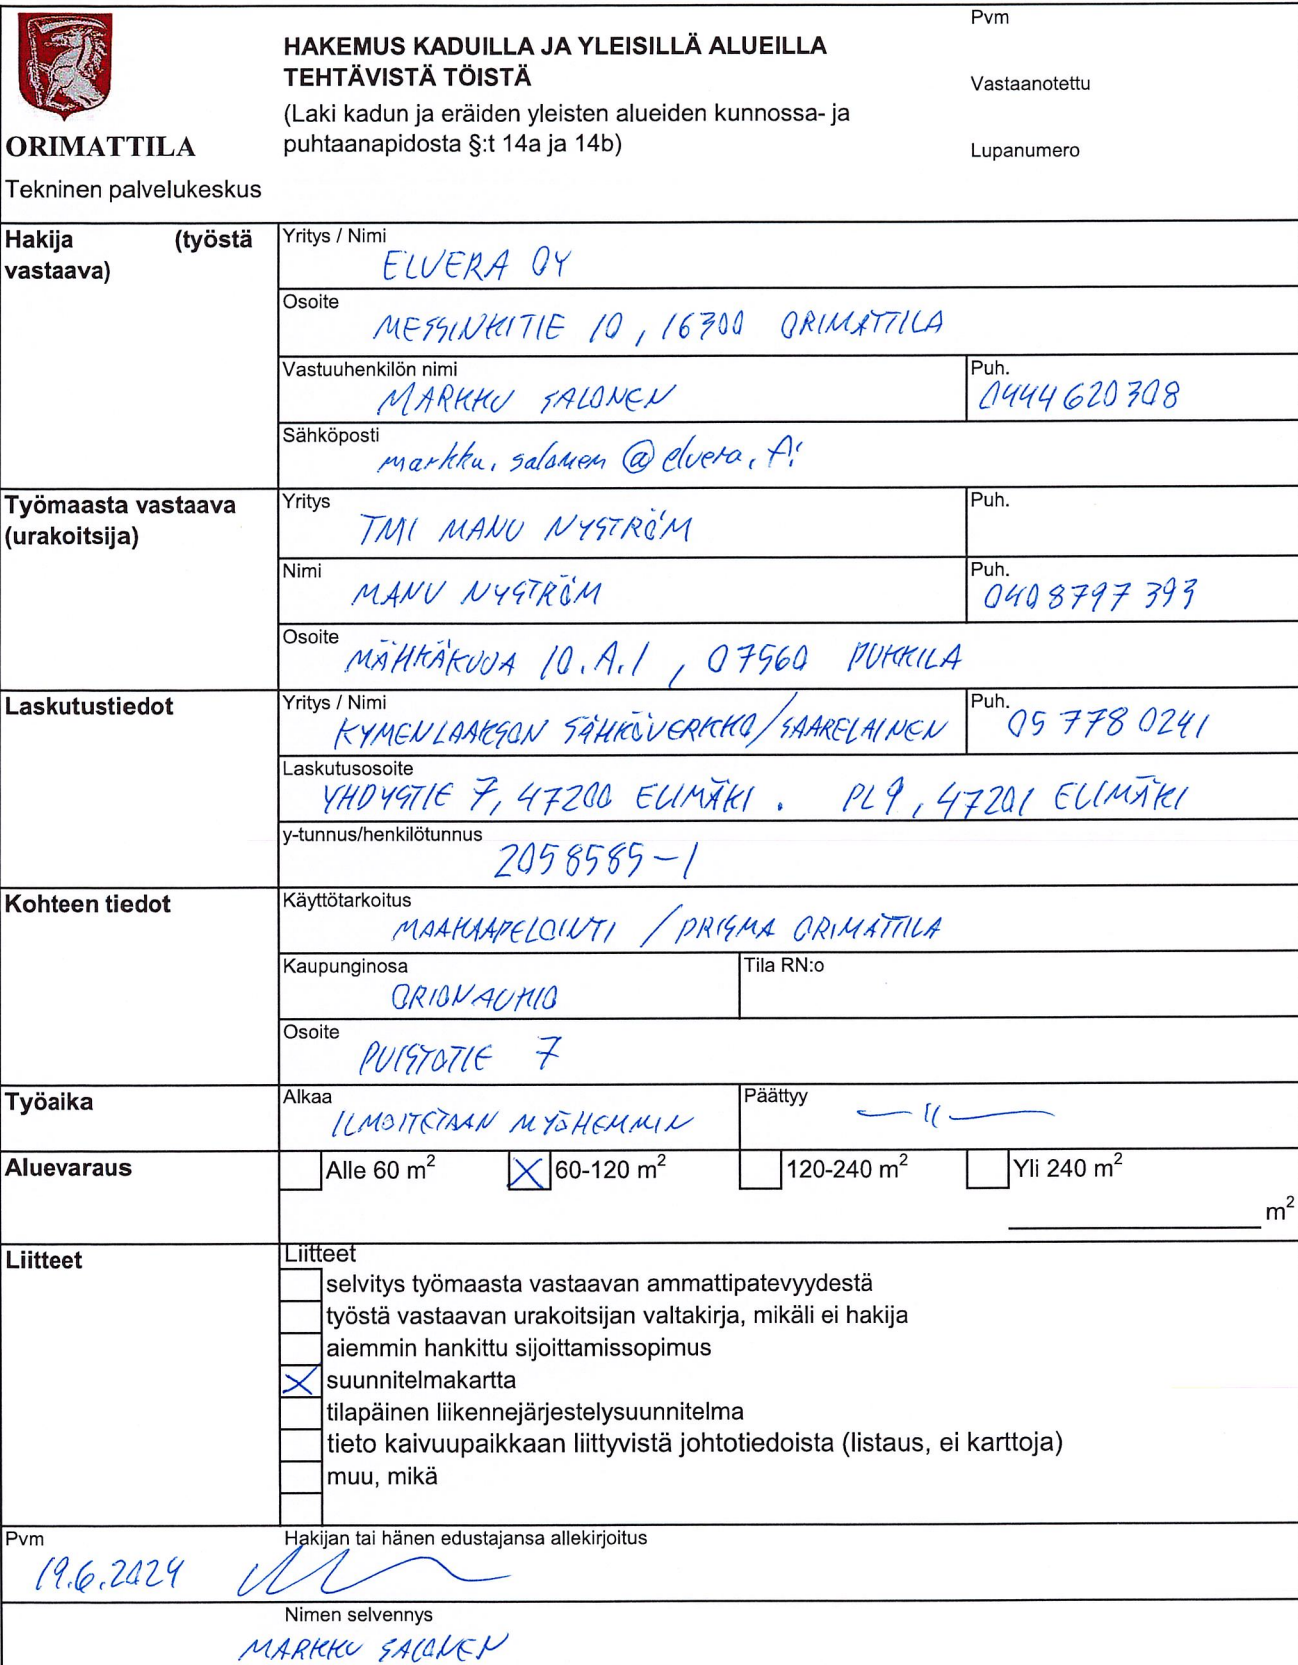 ORIMATTILA
Tekninen palvelukeskus
HAKEMUS KADUILLA JA YLEISILLÄ ALUEILLA
TEHTÄVISTÄ TÖISTÄ
(Laki kadun ja eräiden yleisten alueiden kunnossa- ja
puhtaanapidosta §:t 14a ja 14b)
Pvm
Vastaanotettu
Lupanumero
Hakija (työstä
vastaava)
Yritys / Nimi
ELVERA OY
Osoite
MESSINKITIE 10, 16300 ORIMATTILA
Vastuuhenkilön nimi
MARKKU SALONEN
Puh.
0444620308
Sähköposti
markku.salonen@elvera.fi
Työmaasta vastaava
(urakoitsija)
Yritys
TMI MANU NYSTRÖM
Puh.
Nimi
MANU NYSTRÖM
Puh.
0408797393
Osoite
MÄHKÄKUJA 10.A.1, 07560 PUKKILA
Laskutustiedot
Yritys / Nimi
KYMENLAAKSON SÄHKÖVERKKO/SAARELAINEN
Puh.
05 778 0241
Laskutusosoite
YHDYSTIE 7, 47200 ELIMÄKI. PL9, 47201 ELIMÄKI
y-tunnus/henkilötunnus
2058585-1
Kohteen tiedot
Käyttötarkoitus
MAAKAAPELOINTI / PRISMA ORIMATTILA
Kaupunginosa
ORIONAUKIO
Tila RN:o
Osoite
PUISTOTIE 7
Työaika
Alkaa
ILMOITETAAN MYÖHEMMIN
Päättyy
—〃—
Aluevaraus
Alle 60 m²
X 60-120 m²
120-240 m²
Yli 240 m²
m²
Liitteet
Liitteet
selvitys työmaasta vastaavan ammattipatevyydestä
työstä vastaavan urakoitsijan valtakirja, mikäli ei hakija
aiemmin hankittu sijoittamissopimus
X suunnitelmakartta
tilapäinen liikennejärjestelysuunnitelma
tieto kaivuupaikkaan liittyvistä johtotiedoista (listaus, ei karttoja)
muu, mikä
Pvm
19.6.2024
Hakijan tai hänen edustajansa allekirjoitus
Nimen selvennys
MARKKU SALONEN